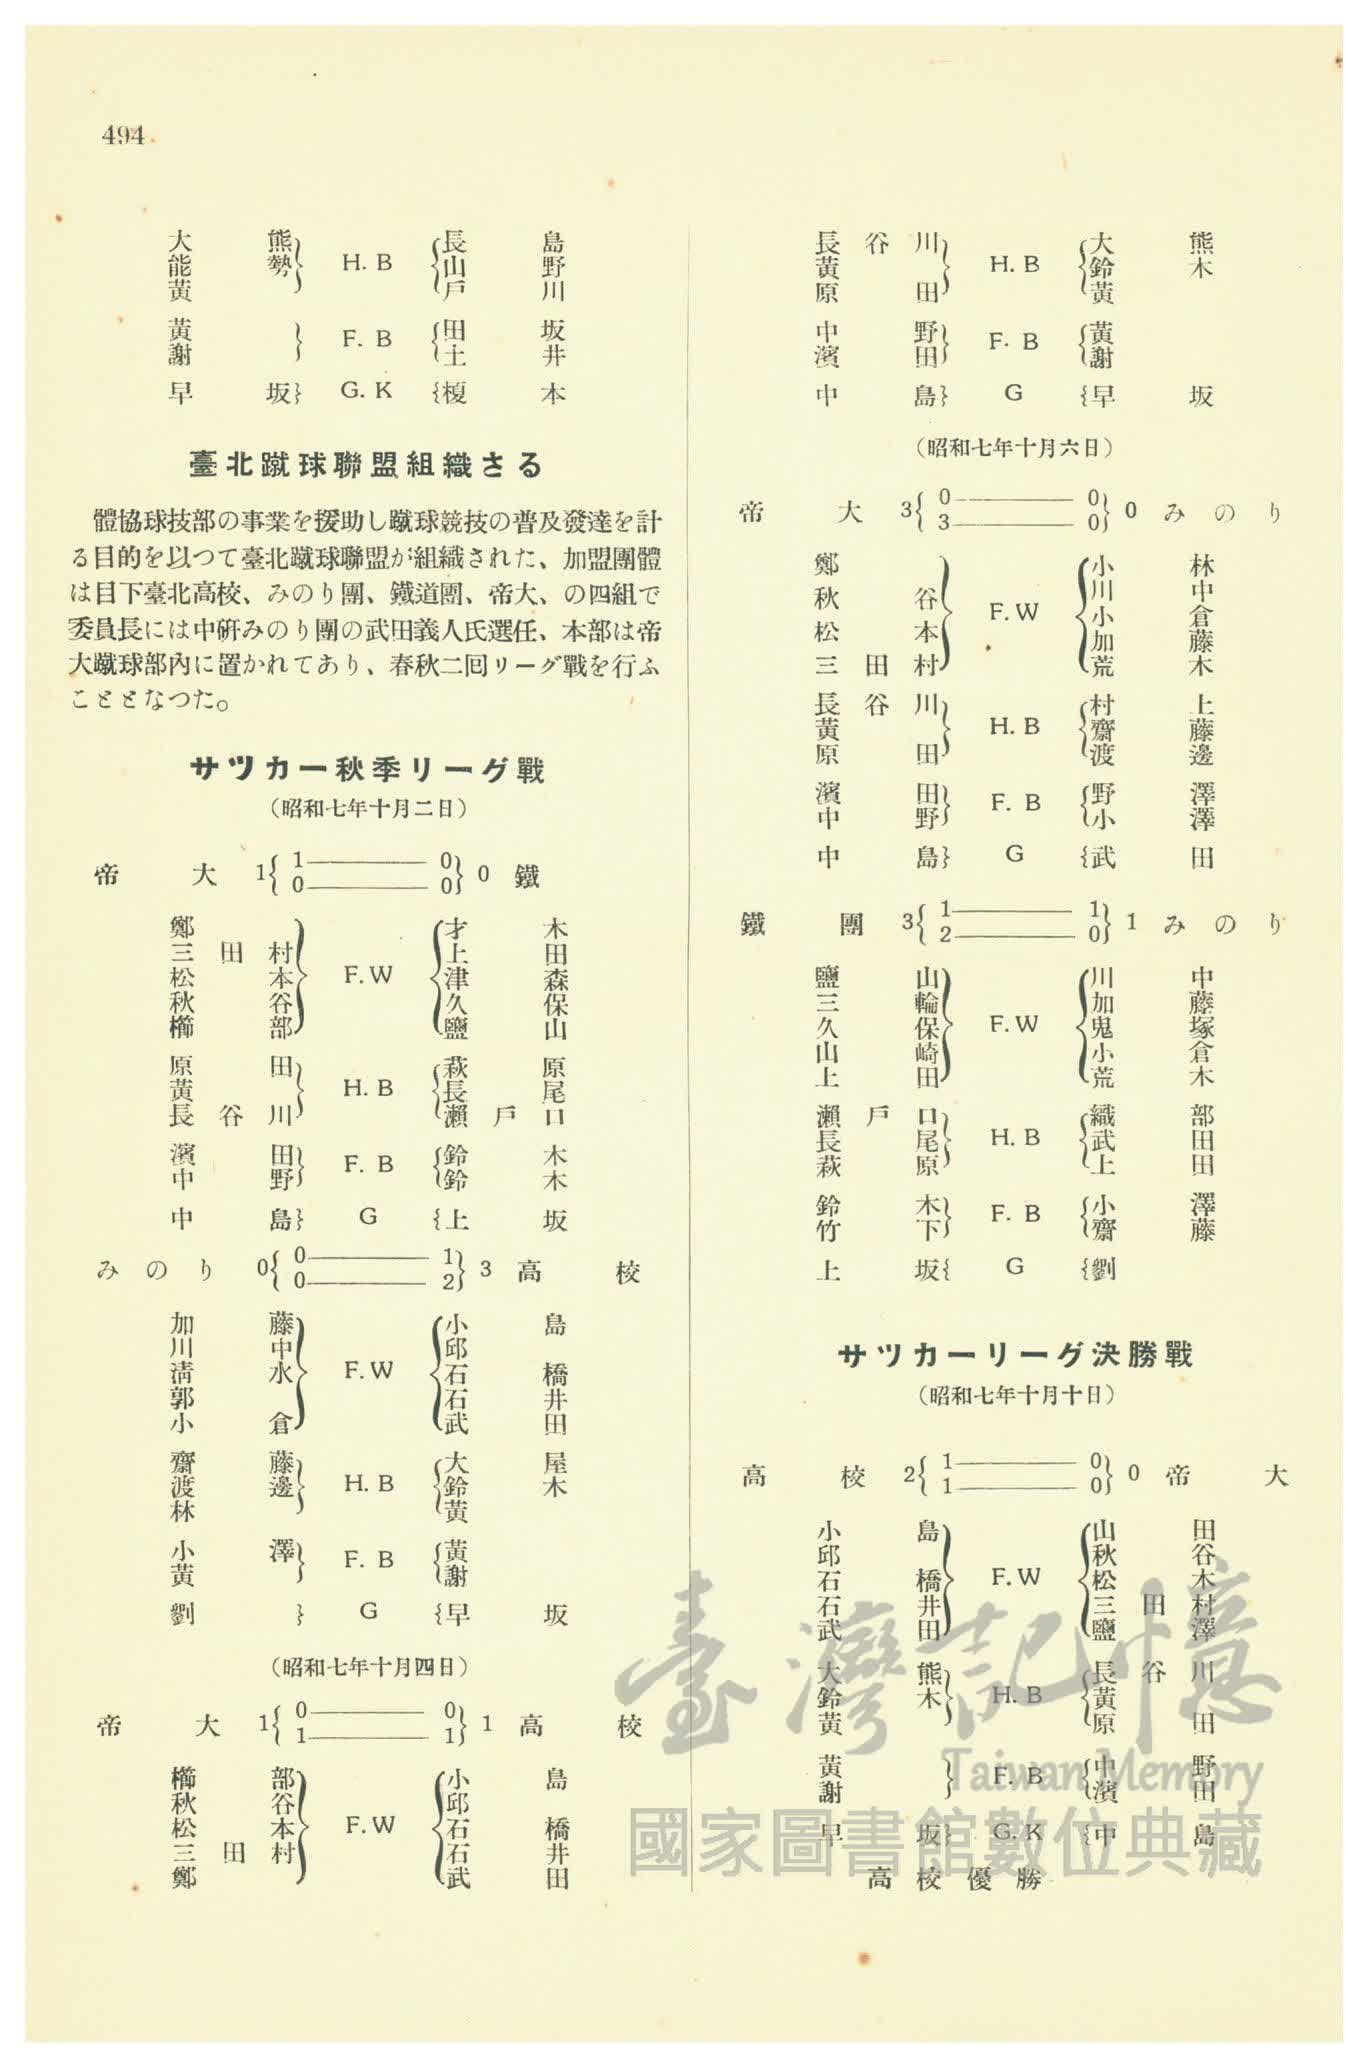 494
大熊 長島
能勢 H. B 山野
黃 戶川
黃 田坂
F. B
謝 土井
早坂 G. K 榎本
臺北蹴球聯盟組織さる
體協球技部の事業を援助し蹴球競技の普及發達を計
る目的を以つて臺北蹴球聯盟が組織された、加盟團體
は目下臺北高校、みのり團、鐵道團、帝大、の四組で
委員長には中硏みのり團の武田義人氏選任、本部は帝
大蹴球部內に置かれてあり、春秋二回リーグ戰を行ふ
こととなつた。
サツカー秋季リーグ戰
(昭和七年十月二日)
帝大 1{1—0 0—0}0 鐵
鄭 才木
三田村 上田
松本 F.W 津森
秋谷 久保
櫛部 鹽山
原田 萩原
黃 H. B 長尾
長谷川 瀨戶口
濱田 鈴木
F. B
中野 鈴木
中島 G 上坂
みのり 0{0—1 0—2}3 高校
加藤 小島
川中 邱
淸水 F.W 石橋
郭 石井
小倉 武田
齋藤 大屋
渡邊 H. B 鈴木
林 黃
小澤 黃
F. B
黃 謝
劉 G 早坂
(昭和七年十月四日)
帝大 1{0—0 1—1}1 高校
櫛部 小島
秋谷 邱
松本 F.W 石橋
三田村 石井
鄭 武田
長谷川 大熊
黃 H. B 鈴木
原田 黃
中野 黃
F. B
濱田 謝
中島 G 早坂
(昭和七年十月六日)
帝大 3{0—0 3—0}0 みのり
鄭 小林
秋谷 川中
F.W 小倉
松本 加藤
三田村 荒木
長谷川 村上
黃 H. B 齋藤
原田 渡邊
濱田 野澤
F. B
中野 小澤
中島 G 武田
鐵團 3{1—1 2—0}1 みのり
鹽山 川中
三輪 加藤
久保 F.W 鬼塚
山崎 小倉
上田 荒木
瀨戶口 織部
長尾 H. B 武田
萩原 上田
鈴木 小澤
F. B
竹下 齋藤
上坂 G 劉
サツカーリーグ決勝戰
(昭和七年十月十日)
高校 2{1—0 1—0}0 帝大
小島 山田
邱 秋谷
石橋 F.W 松木
石井 三田村
武田 鹽澤
大熊 長谷川
鈴木 H. B 黃
黃 原田
黃 中野
F. B
謝 濱田
早坂 G. K 中島
高校優勝
臺灣記憶
Taiwan Memory
國家圖書館數位典藏